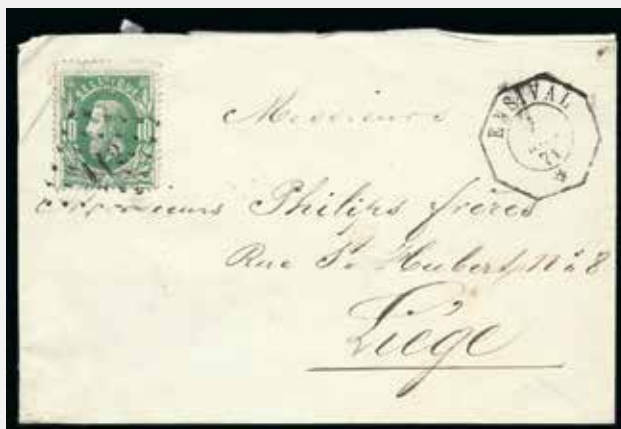 10 10
112
ENSIVAL
Messieurs
Philips frères
Rue St Hubert, N° 8
Liége